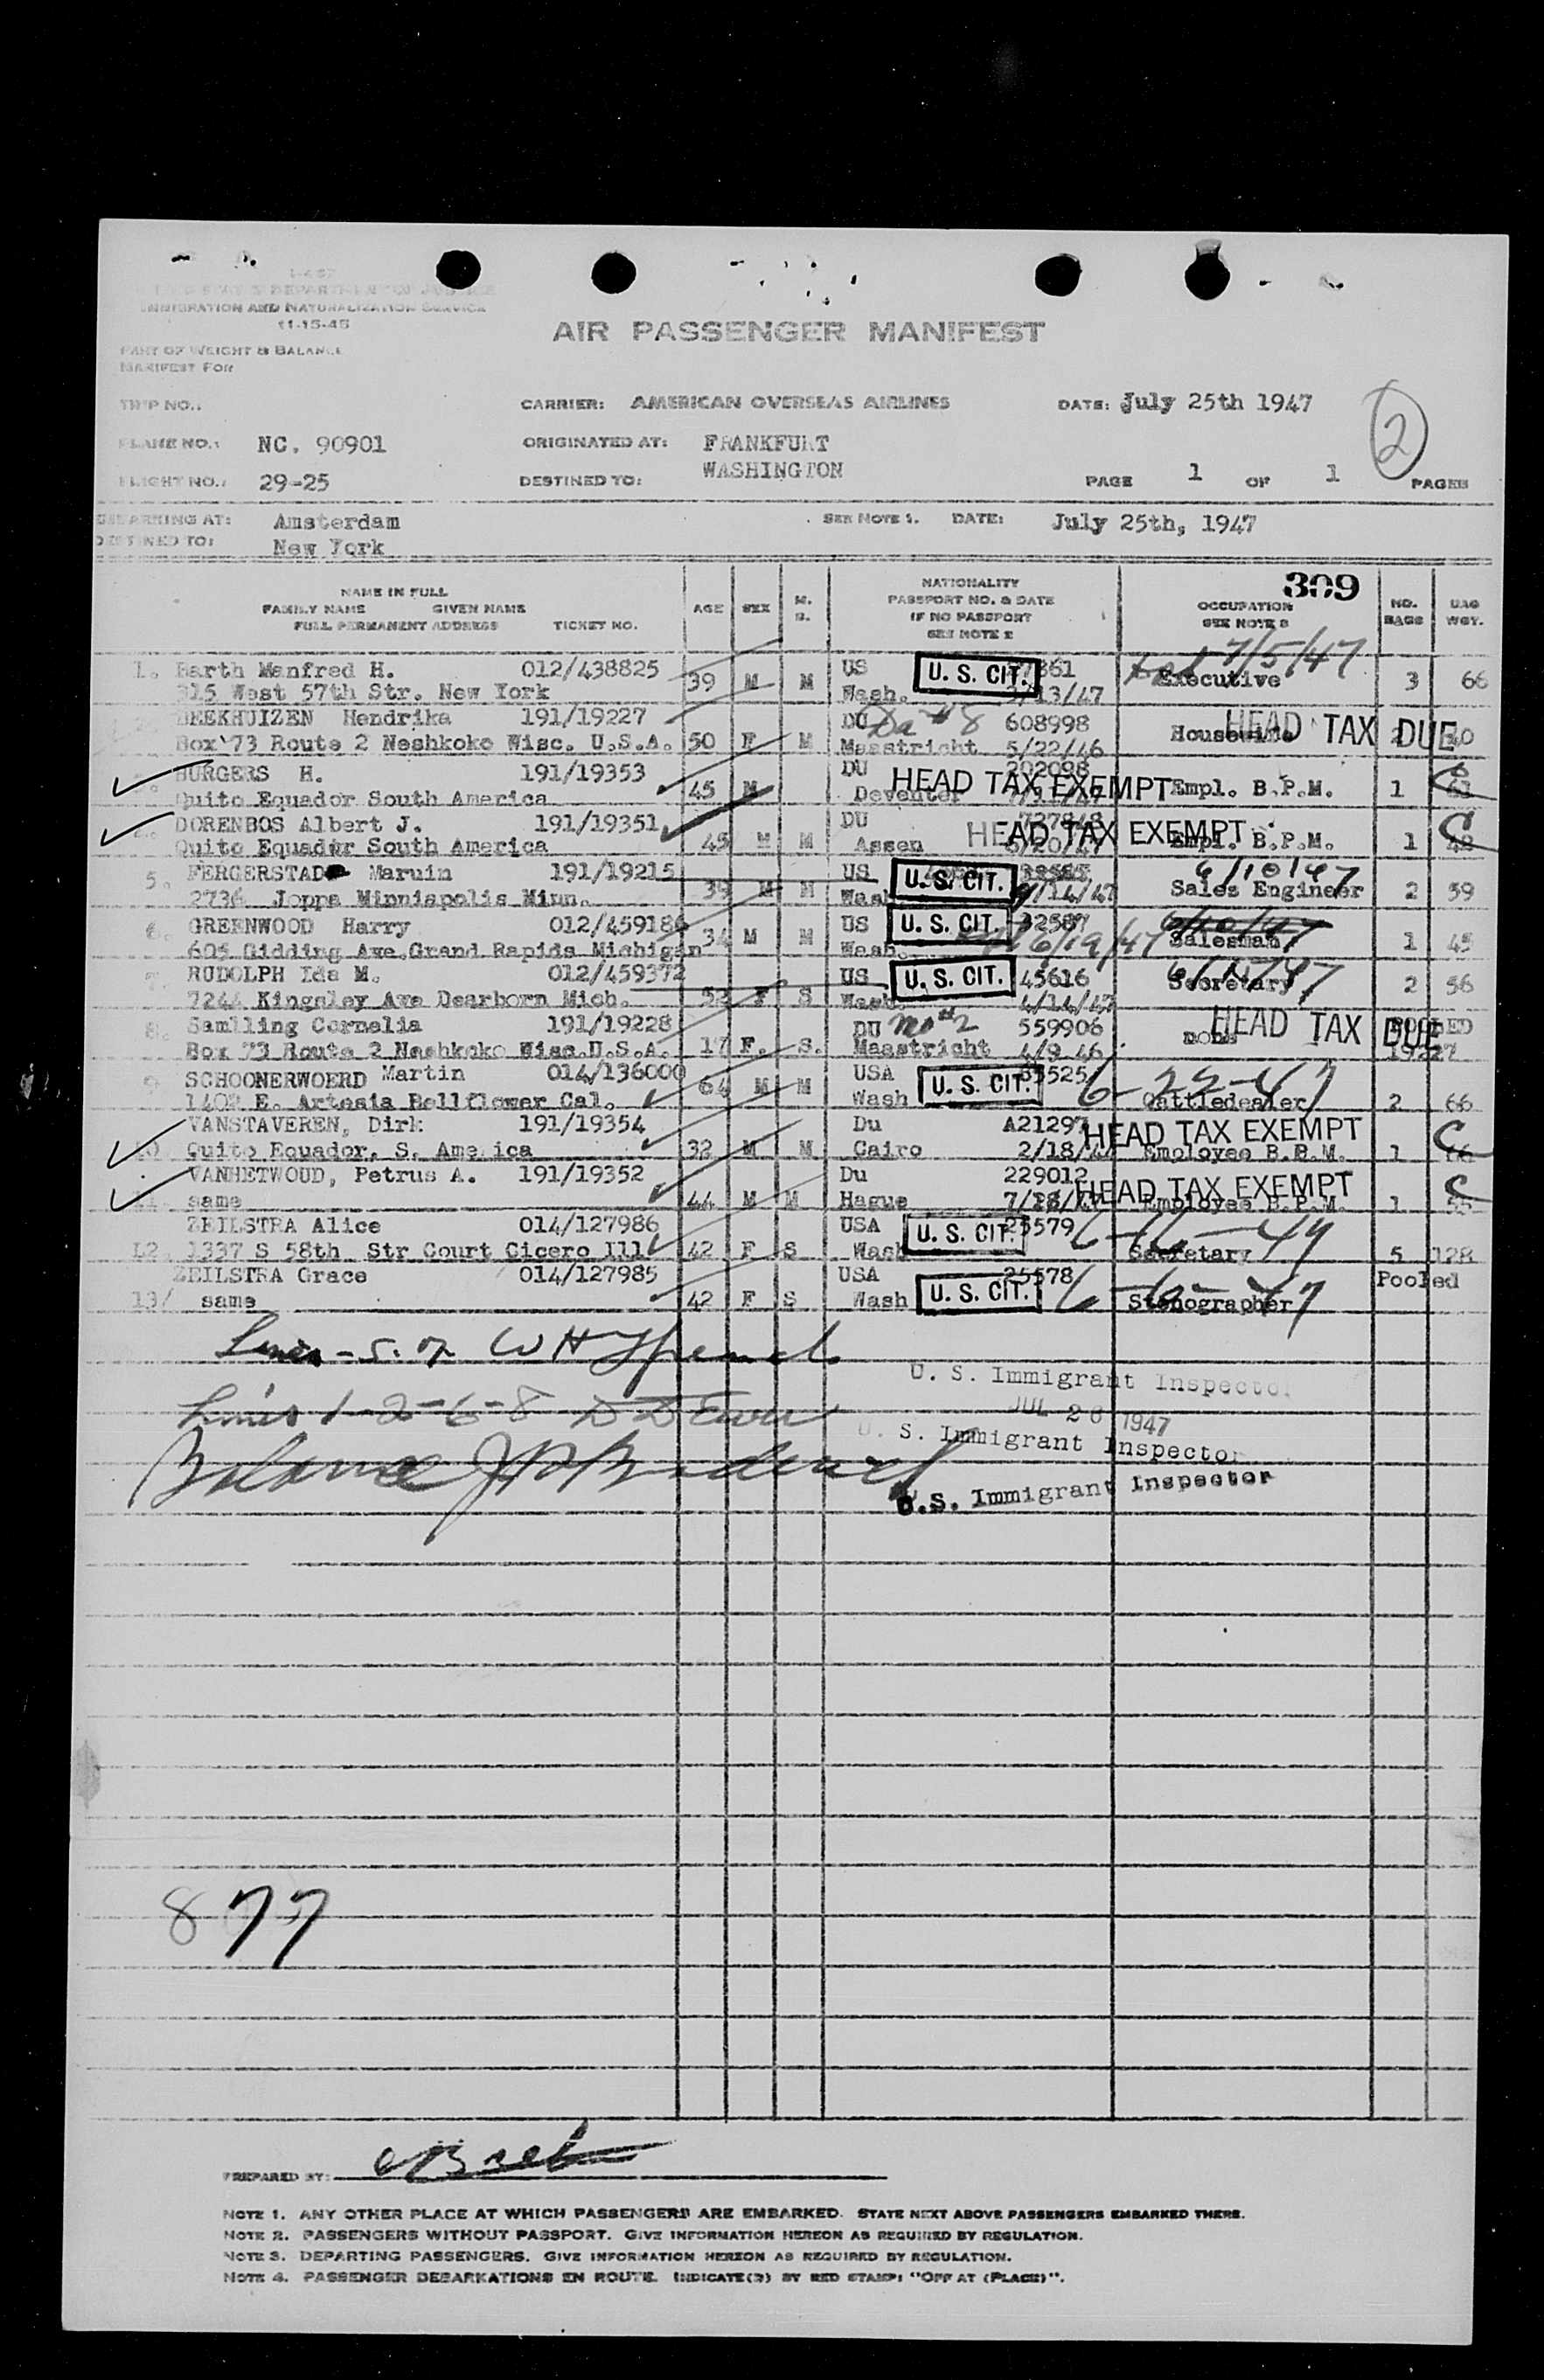 I-467
UNITED STATES DEPARTMENT OF JUSTICE
IMMIGRATION AND NATURALIZATION SERVICE
11-15-45
AIR PASSENGER MANIFEST
PART OF WEIGHT & BALANCE
MANIFEST FOR
TRIP NO.: CARRIER: AMERICAN OVERSEAS AIRLINES DATE: July 25th 1947
2
PLANE NO.: NC. 90901 ORIGINATED AT: FRANKFURT
FLIGHT NO.: 29-25 DESTINED TO: WASHINGTON PAGE 1 OF 1 PAGES
EMBARKING AT: Amsterdam SEE NOTE 1. DATE: July 25th, 1947
DESTINED TO: New York
309
NAME IN FULL
FAMILY NAME GIVEN NAME
FULL PERMANENT ADDRESS TICKET NO.
AGE SEX M. S.
NATIONALITY
PASSPORT NO. & DATE
IF NO PASSPORT
SEE NOTE 2
OCCUPATION
SEE NOTE 3
NO. BAGS
BAG WGT.
1. Barth Manfred H. 012/438825 US U. S. CIT. 7/5/47
315 West 57th Str. New York 39 M M Wash. /13/47 Executive 3 66
BEEKHUIZEN Hendrika 191/19227 DU Da #8 608998 HEAD TAX DUE
Box 73 Route 2 Neshkoko Wisc. U.S.A. 50 F M Maastricht 5/22/46 Housewife 2 40
BURGERS H. 191/19353 DU 202098 HEAD TAX EXEMPT
Quito Equador South America 45 M Deventer Empl. B.P.M. 1 61 C
DORENBOS Albert J. 191/19351 DU HEAD TAX EXEMPT
Quito Equador South America 45 M M Assen /20/47 Empl. B.P.M. 1 C
5. FERGERSTAD Maruin 191/19215 US U. S. CIT. 6/10/47
2736 Joppa Minniapolis Minn. 39 M M Wash /14/47 Sales Engineer 2 59
6. GREENWOOD Harry 012/459186 US U. S. CIT. 32587 6/10/47
605 Gidding Ave.Grand Rapids Michigan 34 M M Wash. 6/19/47 Salesman 1 45
7. RUDOLPH Ida M. 012/459372 US U. S. CIT. 45616
7244 Kingsley Ave Dearborn Mich. 52 F S Wash. 4/14/47 Secretary 2 56
8. Samlling Cornelia 191/19228 DU no #2 559906 HEAD TAX DUE POOLED
Box 73 Route 2 Neshkoko Wisc.U.S.A. 17 F. S. Maastricht 4/9 46 none 19227
9 SCHOONERWOERD Martin 014/136000 USA U. S. CIT. 6-22-47
1402 E. Artesia Bellflower Cal. 64 M M Wash Cattledealer 2 66
VANSTAVEREN, Dirk 191/19354 Du A21297 HEAD TAX EXEMPT
10 Quito Equador, S. Ame ica 32 M M Cairo 2/18/ Employee B.P.M. 1 C
VANHETWOUD, Petrus A. 191/19352 Du 229012 HEAD TAX EXEMPT
11. same 44 M M Hague Employee B.P.M. 1 C
ZEILSTRA Alice 014/127986 USA U. S. CIT. 25579
12. 1337 S 58th Str Court Cicero Ill 42 F S Wash Secretary 5 128
ZEILSTRA Grace 014/127985 USA U. S. CIT. 25578 Pooled
13/ same 42 F S Wash Stenographer
U. S. Immigrant Inspector
Lines 1-2-6-8
JUL 26 1947
U. S. Immigrant Inspector
Balance
U.S. Immigrant Inspector
877
PREPARED BY:
NOTE 1. ANY OTHER PLACE AT WHICH PASSENGERS ARE EMBARKED. STATE NEXT ABOVE PASSENGERS EMBARKED THERE.
NOTE 2. PASSENGERS WITHOUT PASSPORT. GIVE INFORMATION HEREON AS REQUIRED BY REGULATION.
NOTE 3. DEPARTING PASSENGERS. GIVE INFORMATION HEREON AS REQUIRED BY REGULATION.
NOTE 4. PASSENGER DEBARKATIONS EN ROUTE. INDICATE(D) BY RED STAMP: "OFF AT (PLACE)".